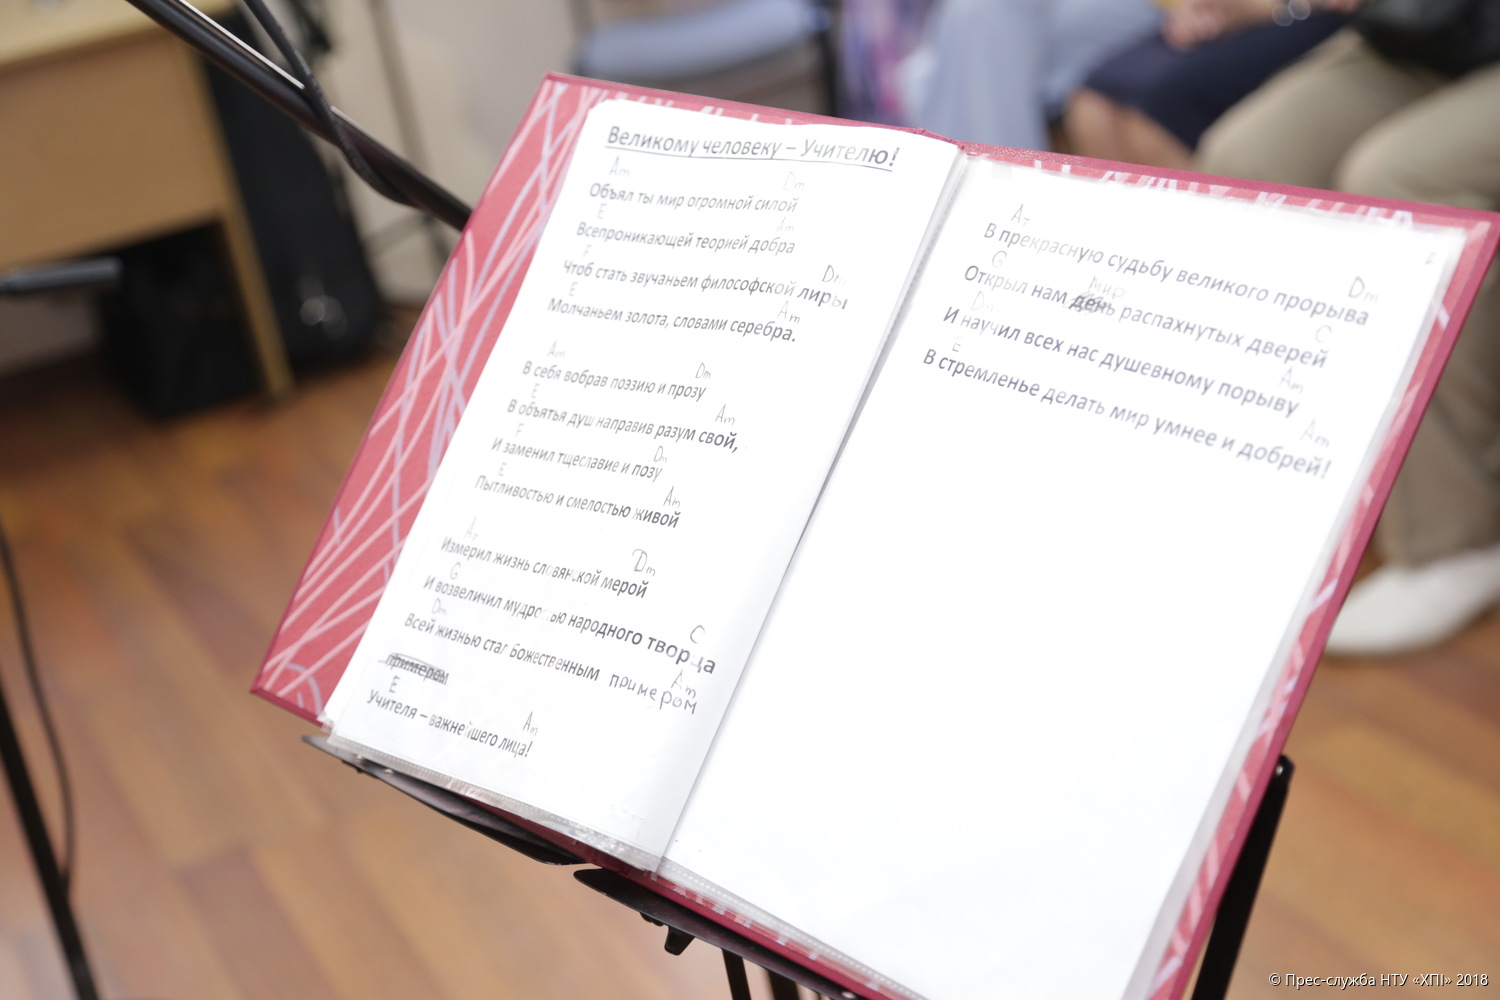 Великому человеку – Учителю!
Am Dm
Объял ты мир огромной силой
E Am
Всепроникающей теорией добра
F Dm
Чтоб стать звучаньем философской лиры
E Am
Молчаньем золота, словами серебра.
Am Dm
В себя вобрав поэзию и прозу
E Am
В объятья душ направив разум свой,
F Dm
И заменил тщеславие и позу
E Am
Пытливостью и смелостью живой
Am Dm
Измерил жизнь славянской мерой
G C
И возвеличил мудростью народного творца
Dm Am
Всей жизнью стал божественным примером
примером
E Am
Учителя – важнейшего лица!
2
Am Dm
В прекрасную судьбу великого прорыва
G мир C
Открыл нам день распахнутых дверей
Dm Am
И научил всех нас душевному порыву
E Am
В стремленье делать мир умнее и добрей!
© Прес-служба НТУ «ХПІ» 2018